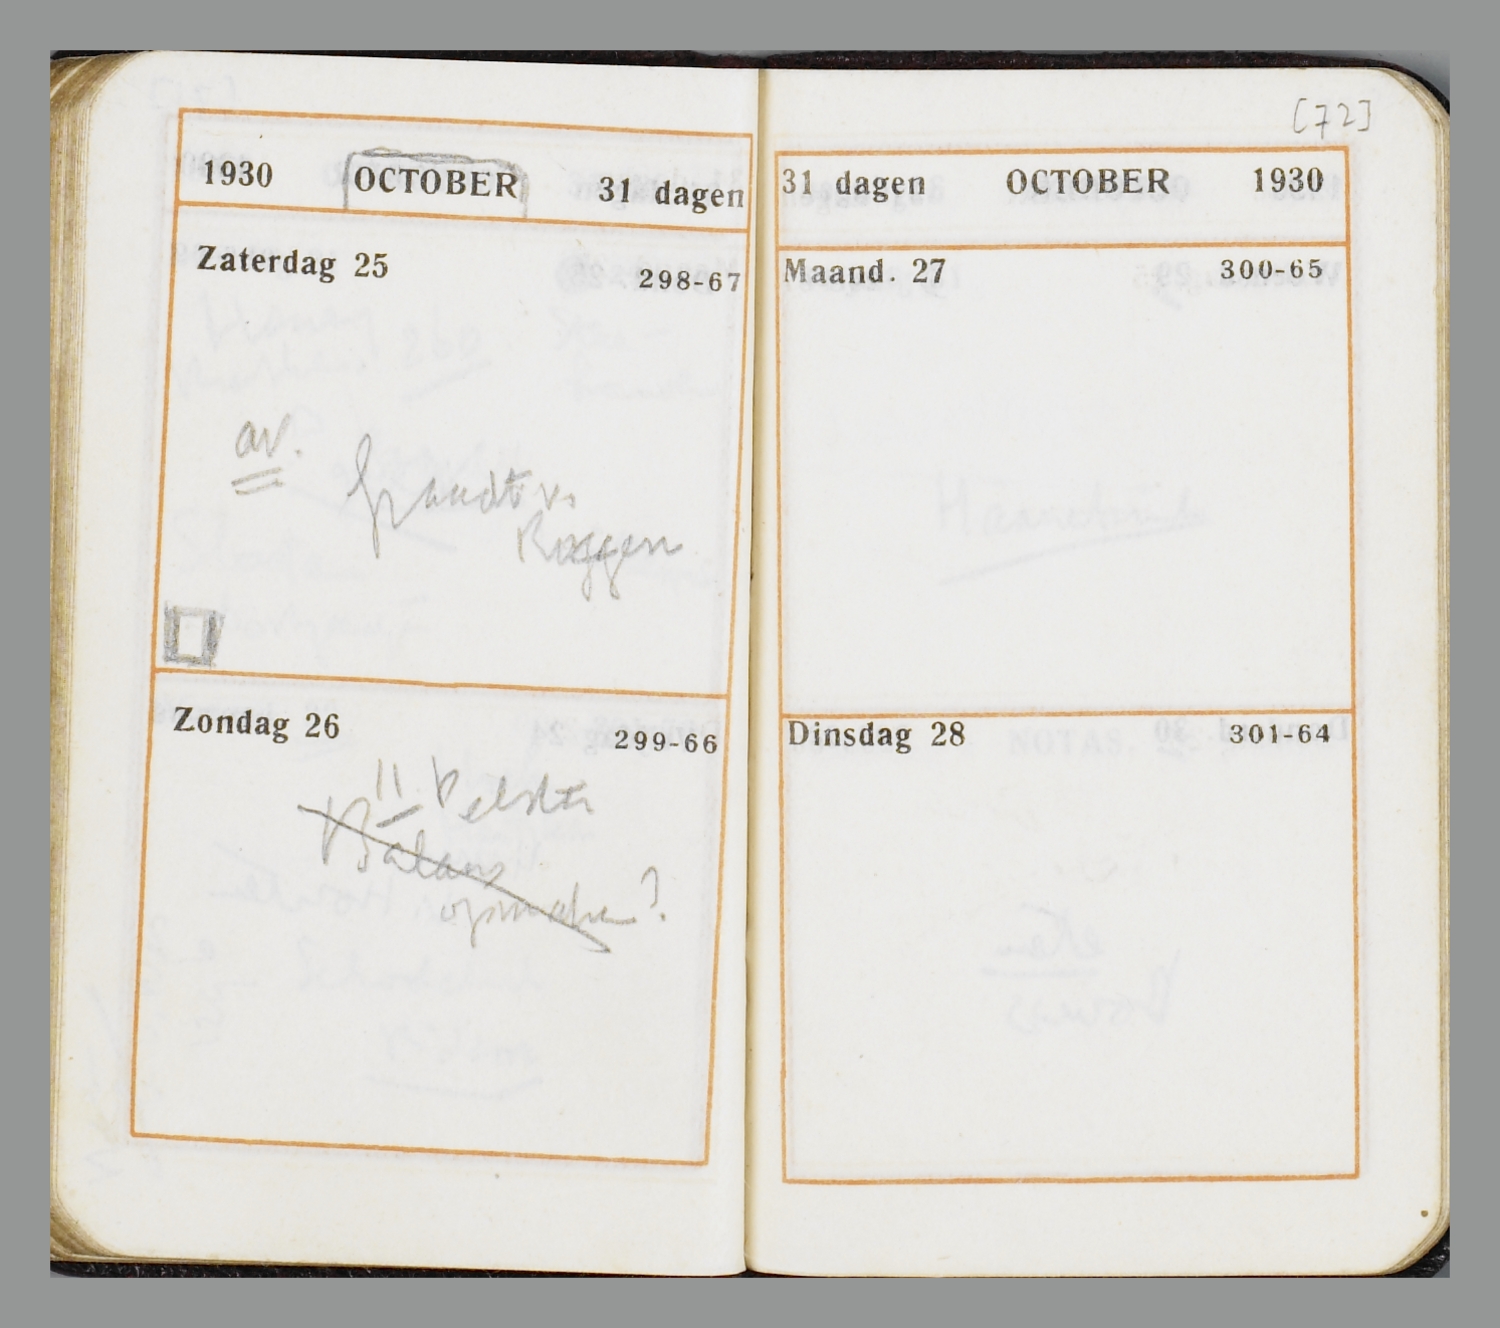 1930 OCTOBER 31 dagen
Zaterdag 25 298-67
av.
v.
Roggen
Zondag 26 299-66
11
Balans
opmaken?
[72]
31 dagen OCTOBER 1930
Maand. 27 300-65
Dinsdag 28 301-64